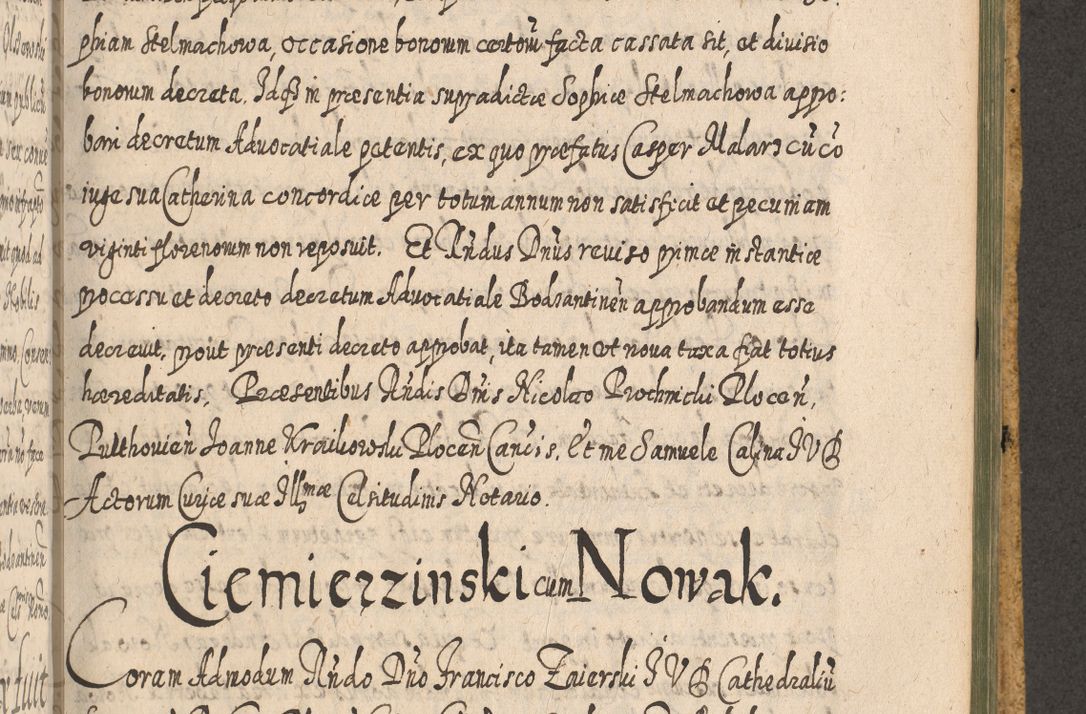 phiam Stelmachowa, occasione bonorum eortow̄ facta cassata sit, et divisio
bonorum decreta. Idq3 in præsentia supradictæ Sophiæ Stelmachowa appro:
bari decretum Advocatiale petentis, ex quo præfatus Casper Malarz cū cō
iuge sua Catherina concordiæ per totum annum non satisfecit et pecuniam
viginti florenorum non reposuit. Et Rndus Dnus reviso primæ instantiæ
processu et decreto decretum Advocatiale Bodzantineñ approbandum esse
decrevit, prout præsenti decreto approbat, ita tamen ut nova taxa fiat totius
hæreditatis. Præsentibus Rndis Dnis Nicolao Prochnicki Ploceñ,
Pultovieñ Joanne Kraikowski Ploceñ Cancis. Et me Samuele Calina JVD
Actorum Curiæ suæ Illmæ Celsitudinis Notario.
Ciemięrzinski cum Nowak.
Coram Admodum Rndo Dno Francisco Zaierski JVD Cathedraliū